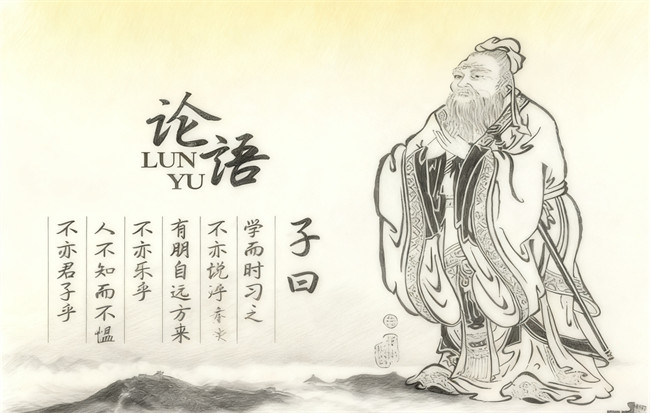 论語
LUN
YU
子曰
学而时习之
不亦悦
有朋自远方来
不亦乐乎
人不知而不愠
不亦君子乎